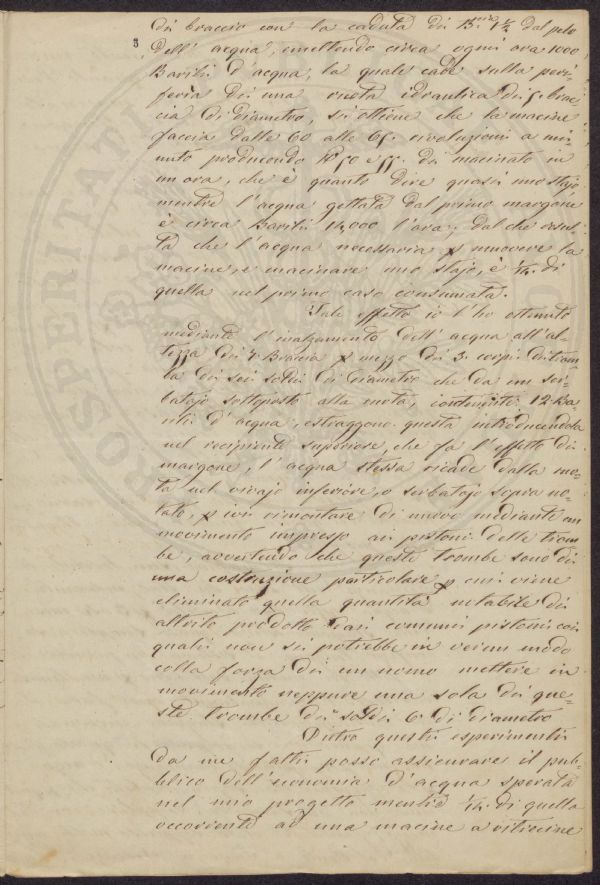 di braccio con la caduta di B.cia 1 ½ dal pelo
dell' acqua, emettendo circa ogni ora 1000
Barili d'acqua, la quale cade sulla peri-
feria di una ruota idraulica di 5. brac-
cia di diametro, si ottiene che la macine
faccia dalle 60 alle 65. rivoluzioni a mi-
nuto producendo di macinato in
un ora, che è quanto dire quasi uno stajo,
mentre l'acqua gettata dal primo margone
è circa Barili 14,000 l'ora; dal che resul-
ta che l'acqua necessaria p muovere la
macine, e macinare uno stajo, è 1/14. di
quella nel primo caso consumata.
Tale effetto io l'ho ottenuto
mediante l'inalzamento dell' acqua all'al-
tezza di 7 Braccia p mezzo di 3. corpi di trom-
ba di sei soldi di diametro che da un ser-
batojo sottoposto alla ruota, contenente 12 Ba-
rili d'acqua, estraggono questa introducendola
nel recipiente superiore, che fa l'effetto di
margone, l'acqua stessa ricade dalla ruo-
ta nel vivajo inferiore, o serbatojo sopra no-
tato, p ivi rimontare di nuovo mediante un
movimento impresso ai pistoni delle trom
be, avvertendo che queste trombe sono di
una costruzione particolare p cui viene
eliminato quella quantità notabile di
attrito prodotto dai comuni pistoni coi
quali non si potrebbe in verun modo
colla forza di un uomo mettere in
movimento neppure una sola di que-
ste trombe di soldi 6 di diametro
Dietro questi esperimenti
da me fatti posso assicurare il pub-
blico dell'economia d'acqua sperata
nel mio progetto mentre 1/14. di quella
occorrente ad una macine a ritrecine
3
PROSPERITATI